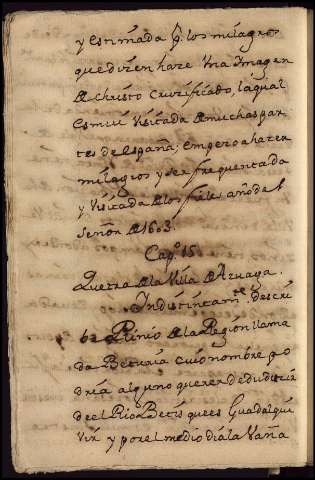 y estimada por los milagros
que dizen haze Una Imagen
de Christo Cruzificado, la qual
es mui Visitada de muchas par
tes de españa; empezo a hazer
milagros y ser frequentada
y Visitada de los fieles año del
Señor de 1603.
Capº. 15.
Que trata de la Villa de Azuaga.
Indistincamte. descri
be Plinio de la Region llama
da Beturia cuio nombre po
dria alguno querer deduducir
de el Rio Betis que es Guadalqui
vir y por el medio dia la vaña